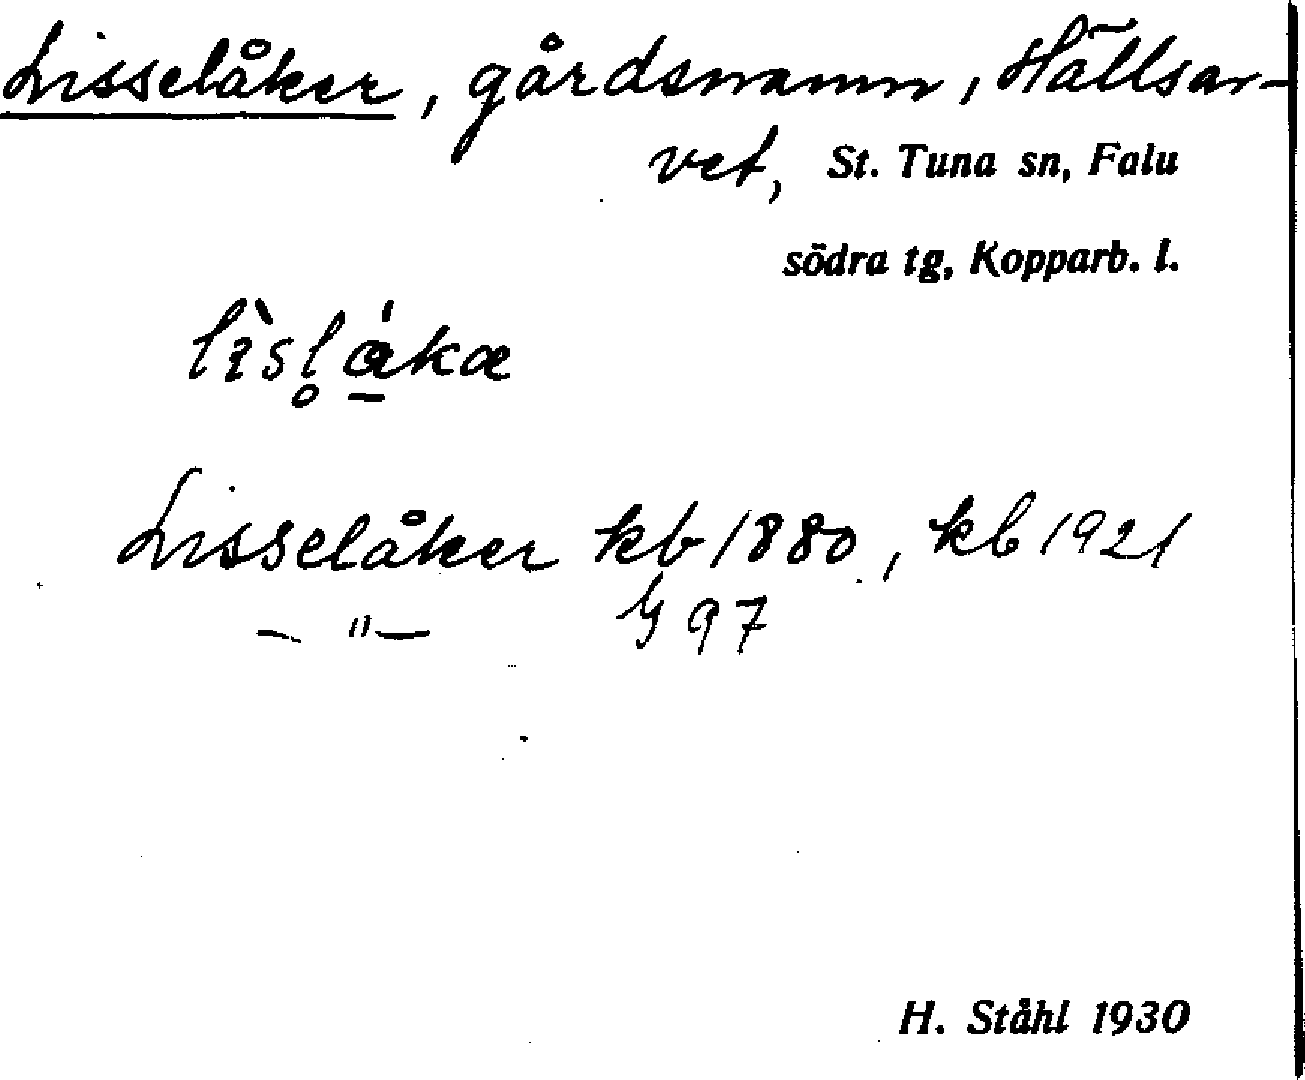 Lisselåker, gårdsnamn, Hällsar-
vet, St. Tuna sn, Falu
södra tg, Kopparb. l.
Lisselåker kb 1880, kb 1921
— " — G 97
H. Ståhl 1930